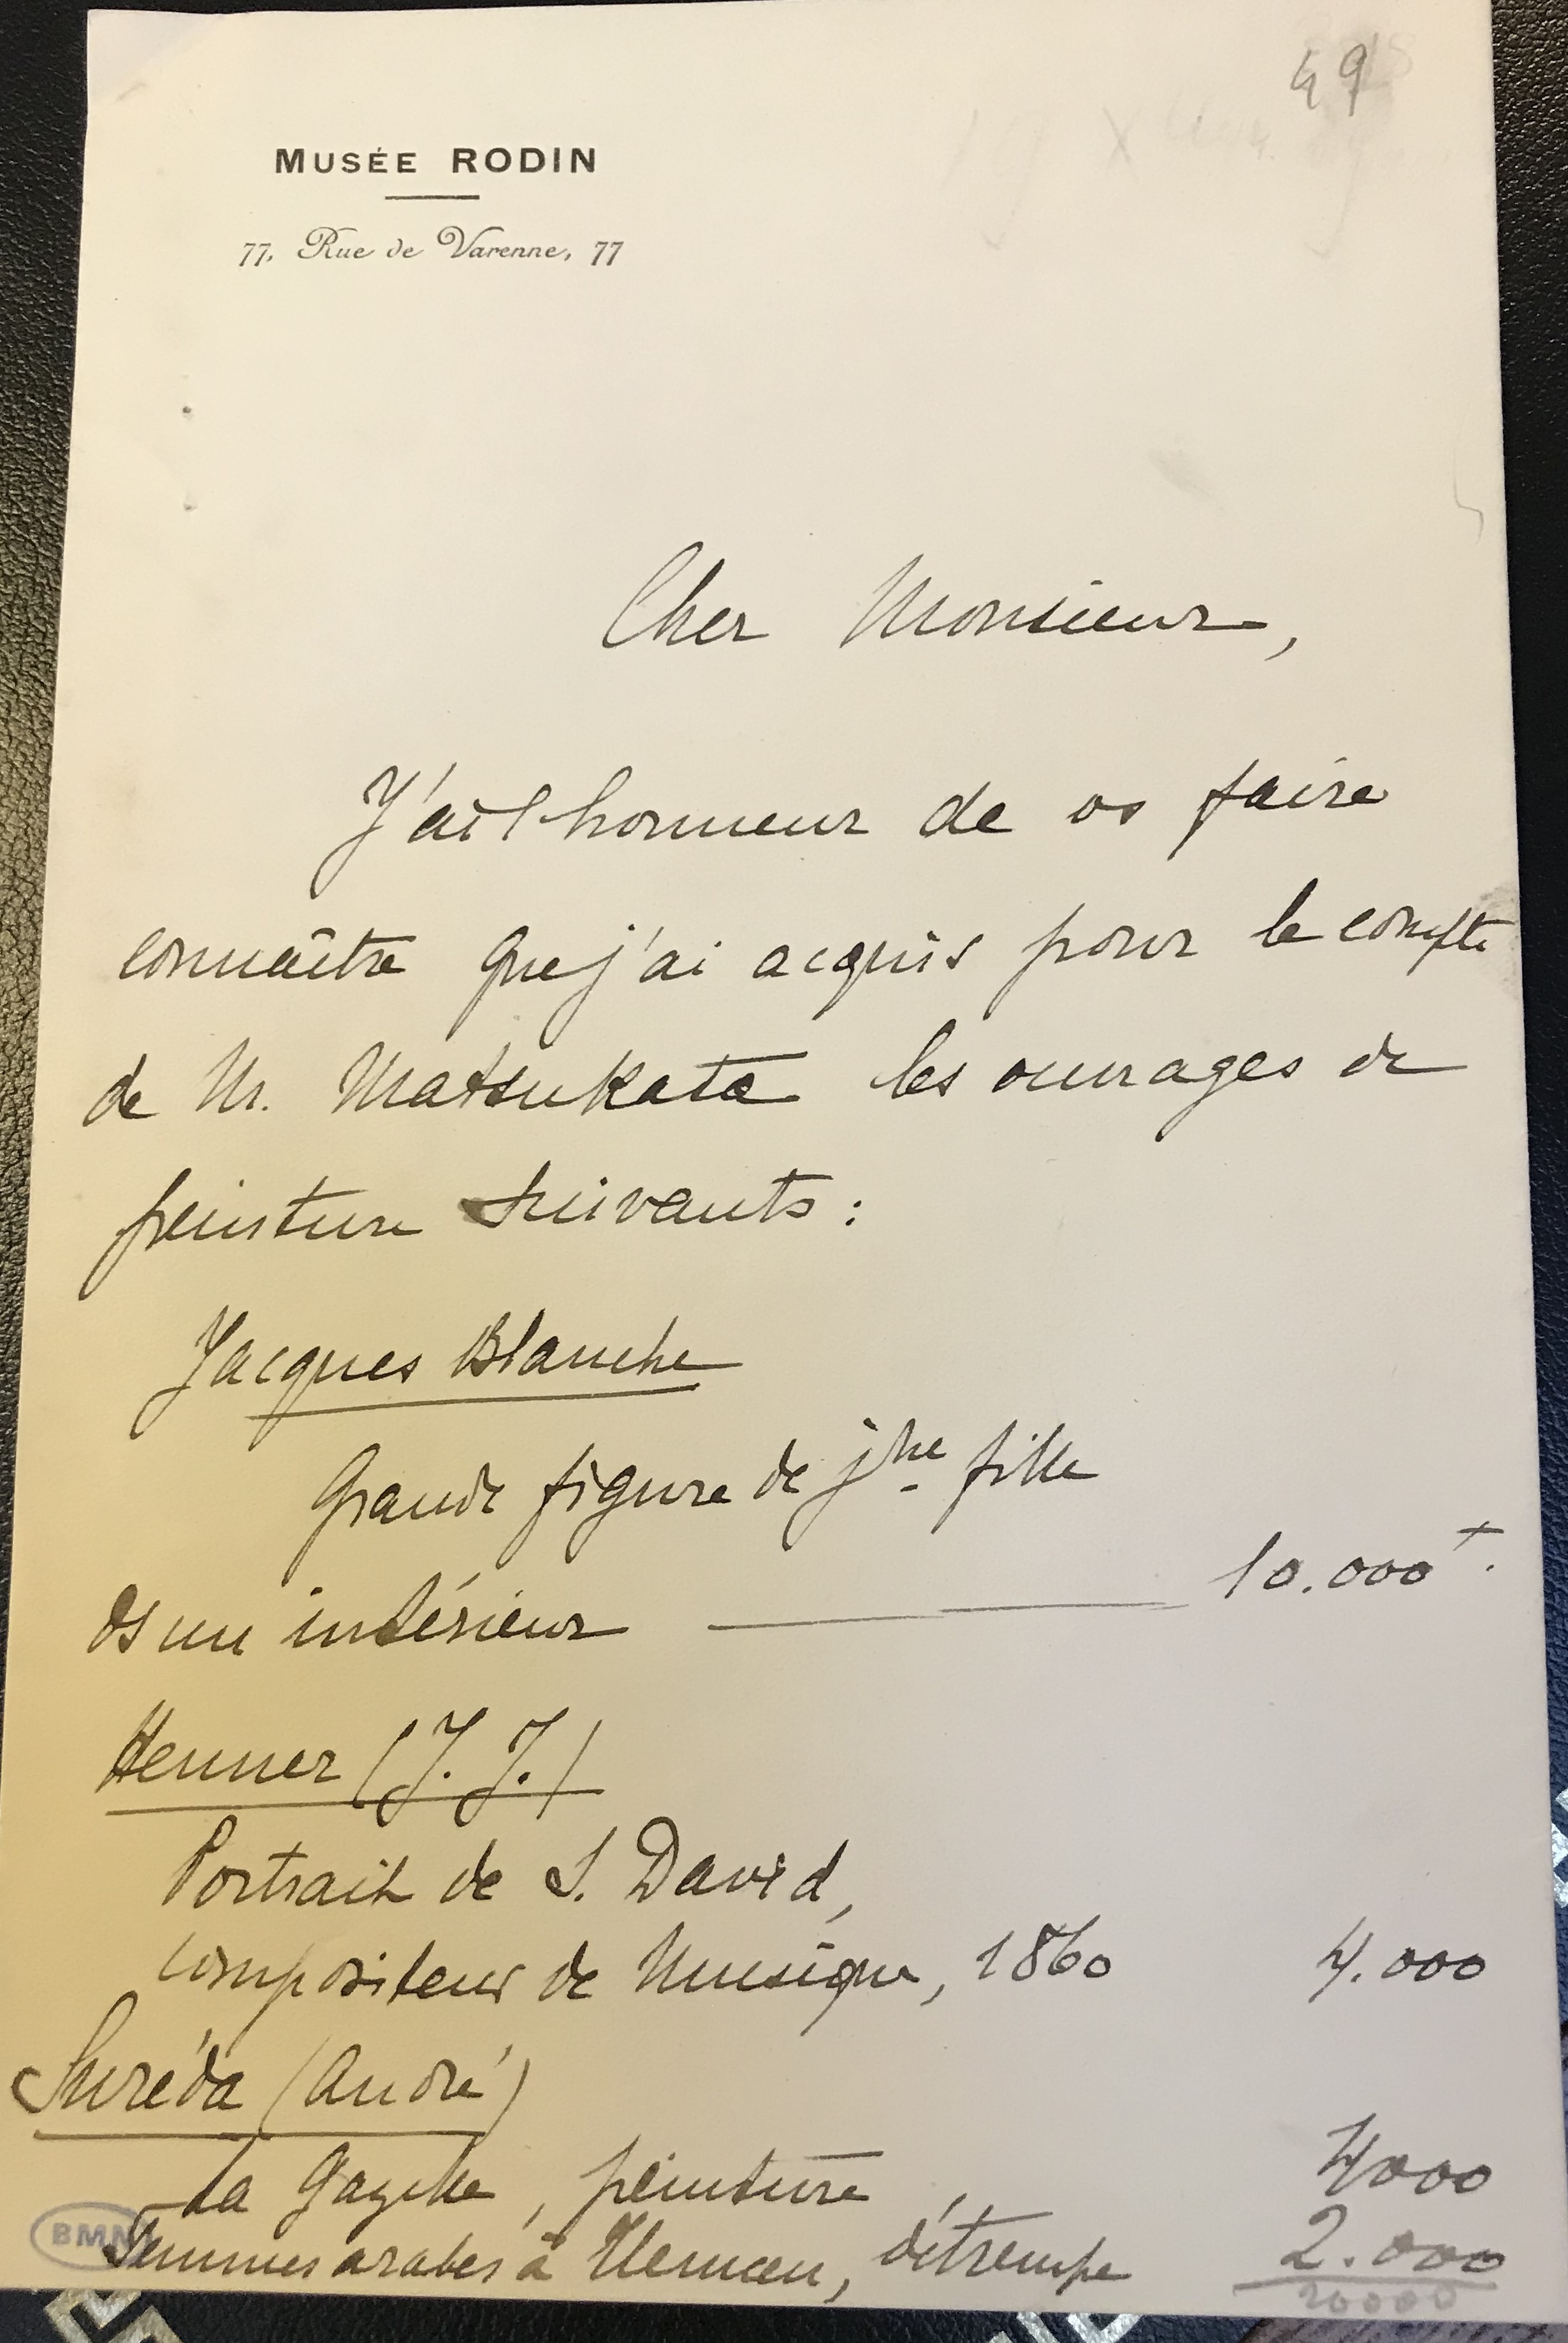 49
MUSÉE RODIN
77, Rue de Varenne, 77
Cher Monsieur,
J'ai l'honneur de vs faire
connaître que j'ai acquis pour le compte
de Mr. Matsukata les ouvrages de
peinture suivants :
Jacques Blanche
Grande figure de jne fille
ds un intérieur 10.000 f.
Henner (J. J.)
Portrait de S. David,
compositeur de Musique, 1860 4.000
Suréda (André)
La Gazelle, peinture, 4000
Femmes arabes à Tlemcen, détrempe 2.000
20000
BMN